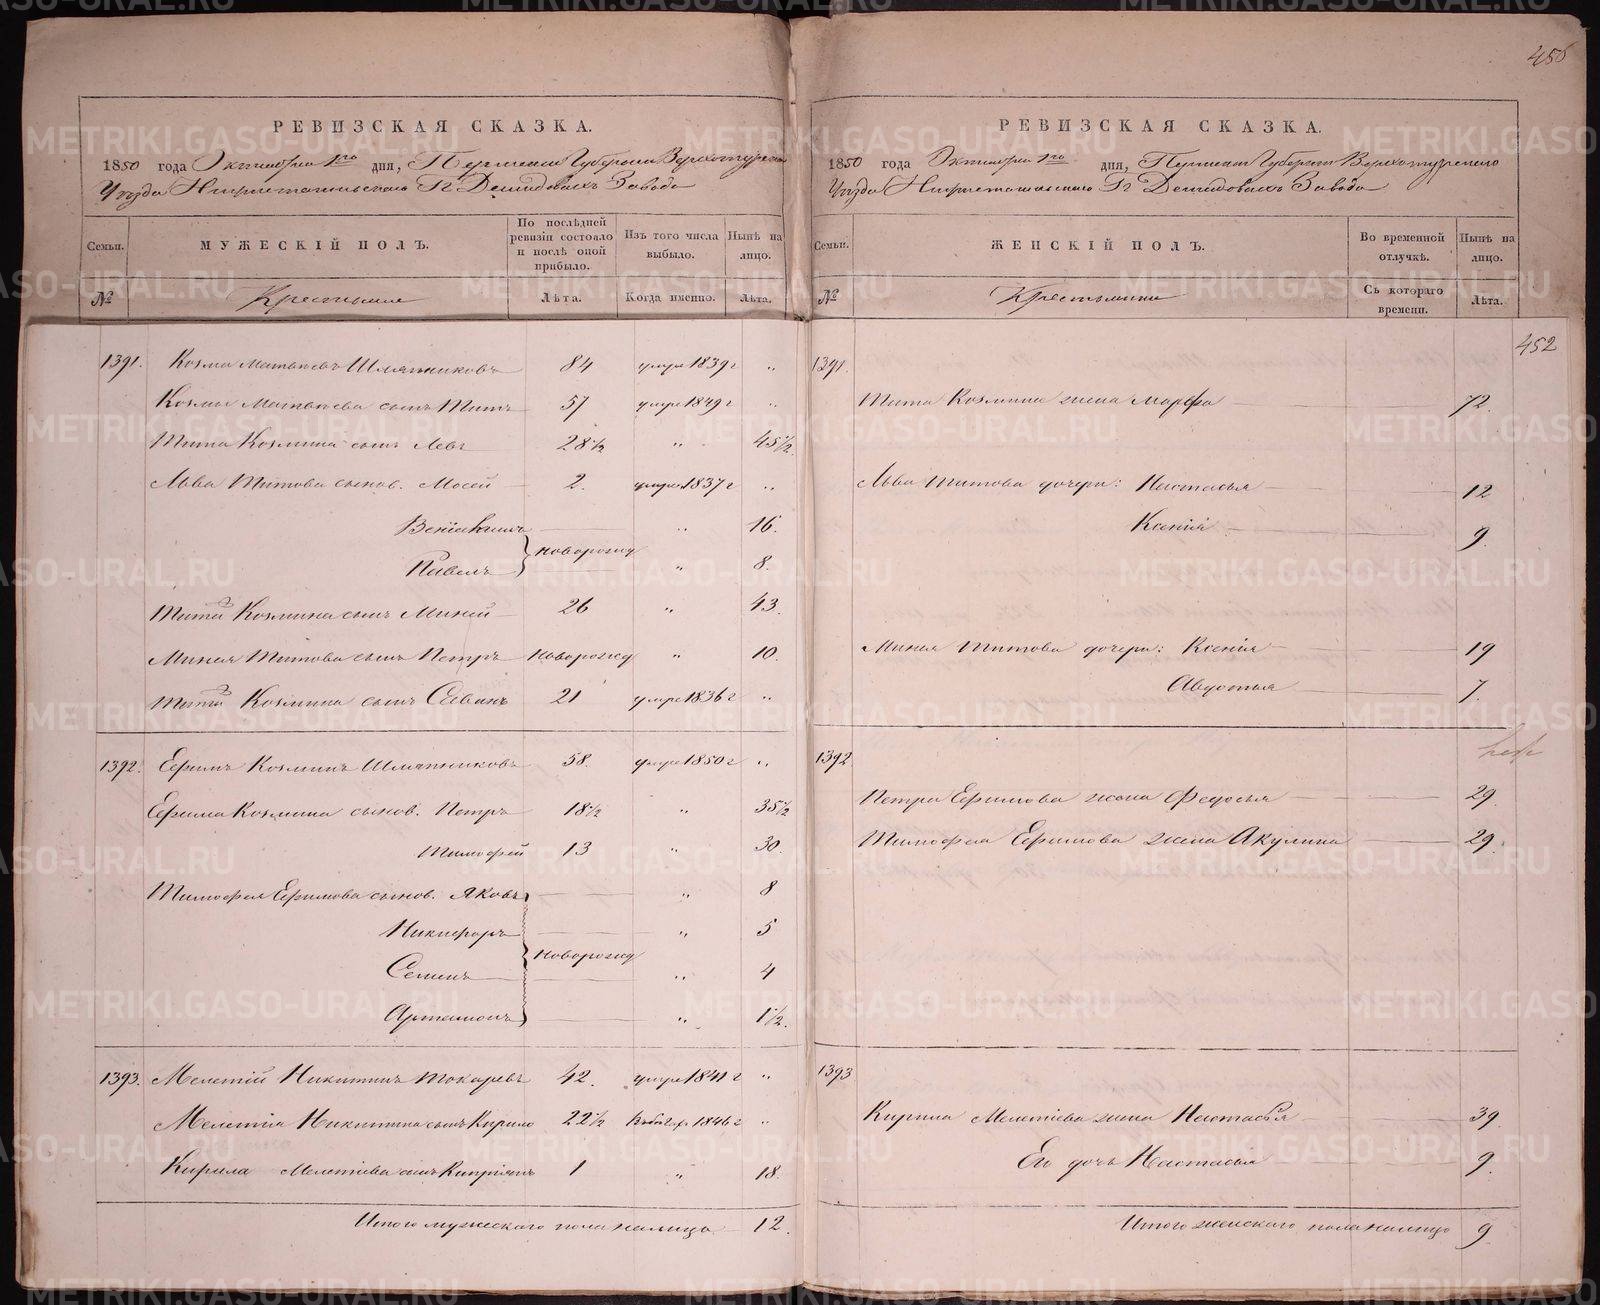 450
РЕВИЗСКАЯ СКАЗКА.
1850 года Октября 1го дня, Пермской Губернии Верхотурскаго
Уезда Нижнетагильскаго Гг Демидовыхъ Завода
Семьи.
МУЖЕСКІЙ ПОЛЪ.
По послѣдней ревизіи состояло и послѣ оной прибыло.
Изъ того числа выбыло.
Нынѣ на лицо.
№
Крестьяне
Лѣта.
Когда именно.
Лѣта.
1391. Козма Матвѣевъ Шляпниковъ 84 умре 1839 г „
Козмы Матвѣева сынъ Титъ 57 умре 1849 г „
Тита Козмина сынъ Левъ 28 1/2 „ 45 1/2
Льва Титова сынов. Мосей 2. умре 1837 г „
Веніаминъ „ 16.
новорожд
Павелъ „ 8.
Тита Козмина сынъ Миней 26 „ 43.
Минея Титова сынъ Петръ новорожд „ 10.
Тита Козмина сынъ 21 умре 1836 г „
1392. Ефимъ Козминъ Шляпниковъ 58. умре 1850 г „
Ефима Козмина сынов. Петръ 18 1/2 „ 35 1/2
Тимофей 13 „ 30.
Тимофея Ефимова сынов. Яковъ „ 8
Никифоръ „ 5
новорожд
Семенъ „ 4
Артамонъ „ 1 1/2.
1393. Мелетій Никитинъ Токаревъ 42. умре 1841 г „
Мелетія Никитина сынъ Кирило 22 1/2 1846 г „
Кирила Мелетіева сынъ Кипріянъ 1 „ 18.
Итого мужескаго пола налицо 12.
РЕВИЗСКАЯ СКАЗКА.
1850 года Октября 1го дня, Пермской Губерніи Верхотурскаго
Уезда Нижнетагильскаго Гг Демидовыхъ Завода
Семьи.
ЖЕНСКІЙ ПОЛЪ.
Во временной отлучкѣ.
Нынѣ на лицо.
№
Крестьянки
Съ котораго времени.
Лѣта.
452
1391.
Тита Козмина жена Марфа 72.
Льва Титова дочери: Настасья 12
Ксенія 9.
Минея Титова дочери: Ксенія 19
Авдотья 7.
1392
Петра Ефимова жена Федосья 29.
Тимофея Ефимова жена Акулина 29.
1393
Кирила Мелетіева жена Настасья 39.
Его дочь Настасья 9.
Итого женскаго пола налицо 9.
METRIKI.GASO-URAL.RU